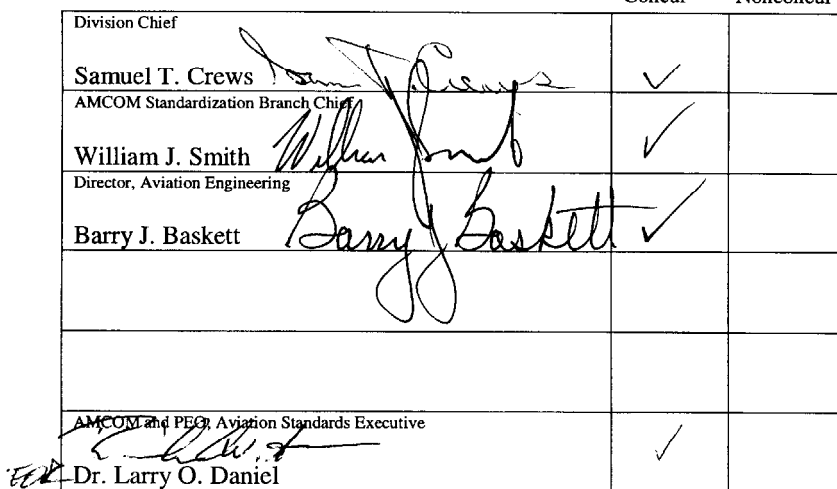 Concur Nonconcur
Division Chief
Samuel T. Crews Sam T Crews ✓
AMCOM Standardization Branch Chief
William J. Smith William J Smith ✓
Director, Aviation Engineering
Barry J. Baskett Barry J Baskett ✓
AMCOM and PEO, Aviation Standards Executive
✓
FOR Dr. Larry O. Daniel